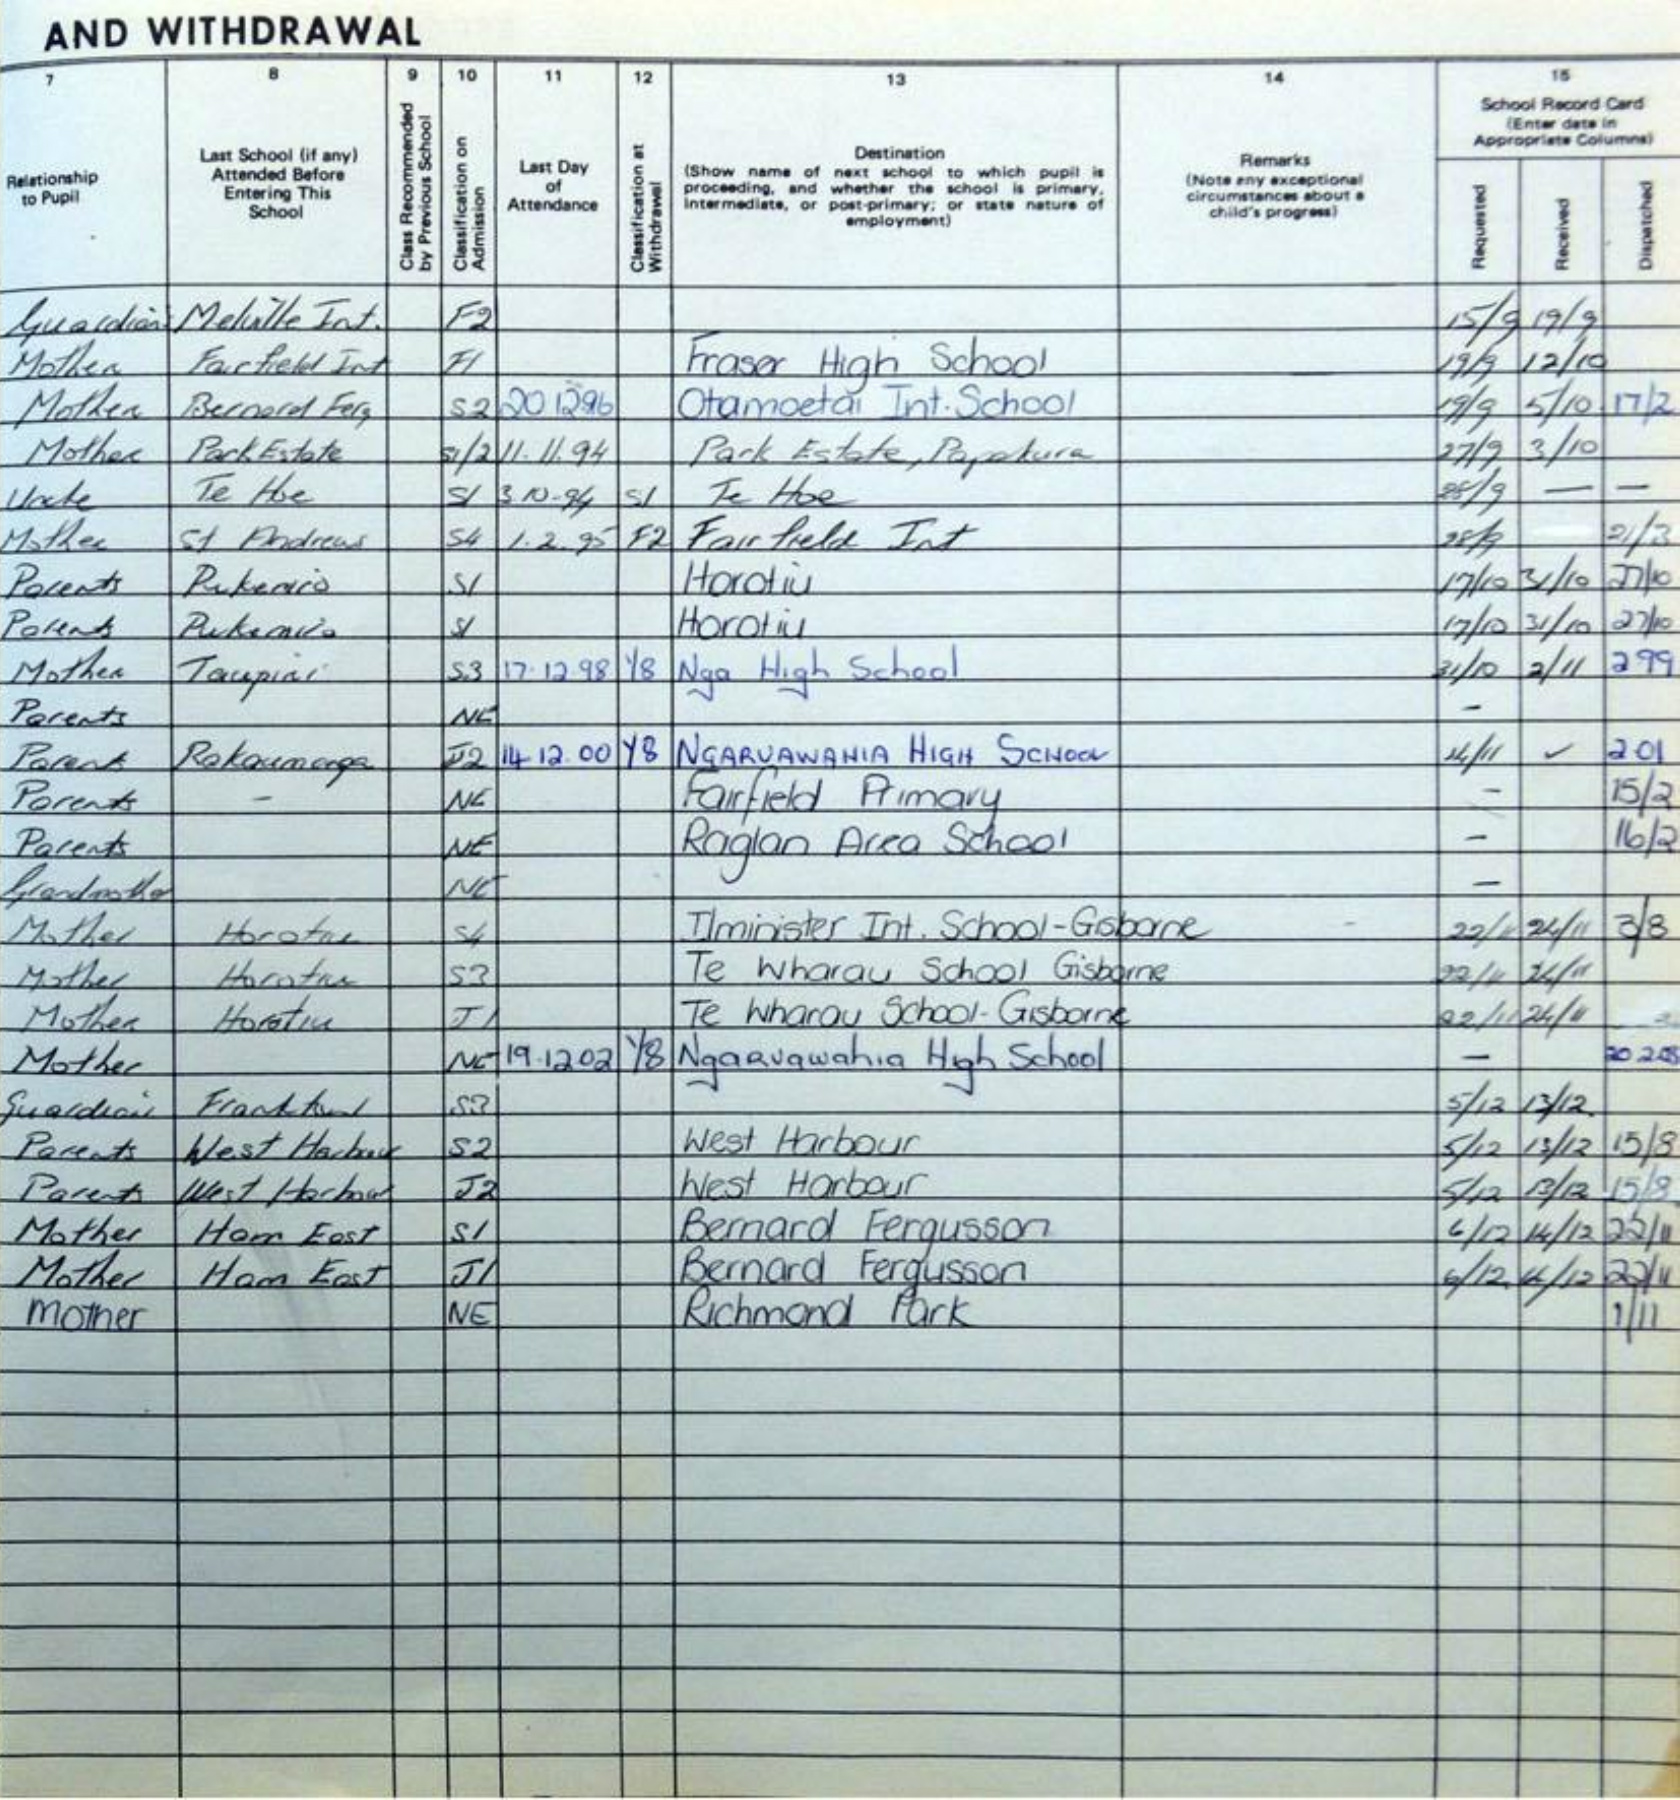 AND WITHDRAWAL
7 8 9 10 11 12 13 14 15
Relationship to Pupil
Last School (if any) Attended Before Entering This School
Class Recommended by Previous School
Classification on Admission
Last Day of Attendance
Classification at Withdrawal
Destination
(Show name of next school to which pupil is proceeding, and whether the school is primary, intermediate, or post-primary; or state nature of employment)
Remarks
(Note any exceptional circumstances about a child's progress)
School Record Card
(Enter date in Appropriate Columns)
Requested Received Dispatched
Guardian Melville Int. F2 15/9 19/9
Mother Fairfield Int F1 Fraser High School 19/9 12/10
Mother Bernard Ferg S2 20 12 96 Otamoetai Int. School 19/9 5/10 17/2
Mother Park Estate S1/2 11.11.94 Park Estate, Papakura 27/9 3/10
Uncle Te Hoe S1 3.10.94 S1 Te Hoe 28/9 — —
Mother St Andrews S4 1.2.95 F2 Fairfield Int 28/9 21/3
Parents Pukemiro S1 Horotiu 17/10 31/10 27/10
Parents Pukemiro S1 Horotiu 17/10 31/10 27/10
Mother Taupiri S3 17.12.98 Y8 Nga High School 31/10 2/11 2 99
Parents NE –
Parents Rakaumanga J2 14.12.00 Y8 NGARUAWAHIA HIGH SCHOOL 14/11 ✓ 2 01
Parents – NE Fairfield Primary – 15/2
Parents NE Raglan Area School – 16/2
Grandmother NE –
Mother Horotiu S4 Ilminister Int. School - Gisborne 22/11 24/11 3/8
Mother Horotiu S3 Te Wharau School Gisborne 22/11 24/11
Mother Horotiu J1 Te Wharau School - Gisborne 22/11 24/11
Mother NE 19.12.02 Y8 Ngaruawahia High School –
Guardian Frankton S3 5/12 13/12.
Parents West Harbour S2 West Harbour 5/12 13/12 15/8
Parents West Harbour J2 West Harbour 5/12 13/12 15/8
Mother Ham East S1 Bernard Fergusson 6/12 14/12 22/11
Mother Ham East J1 Bernard Fergusson 6/12 14/12 22/11
Mother NE Richmond Park 1/11